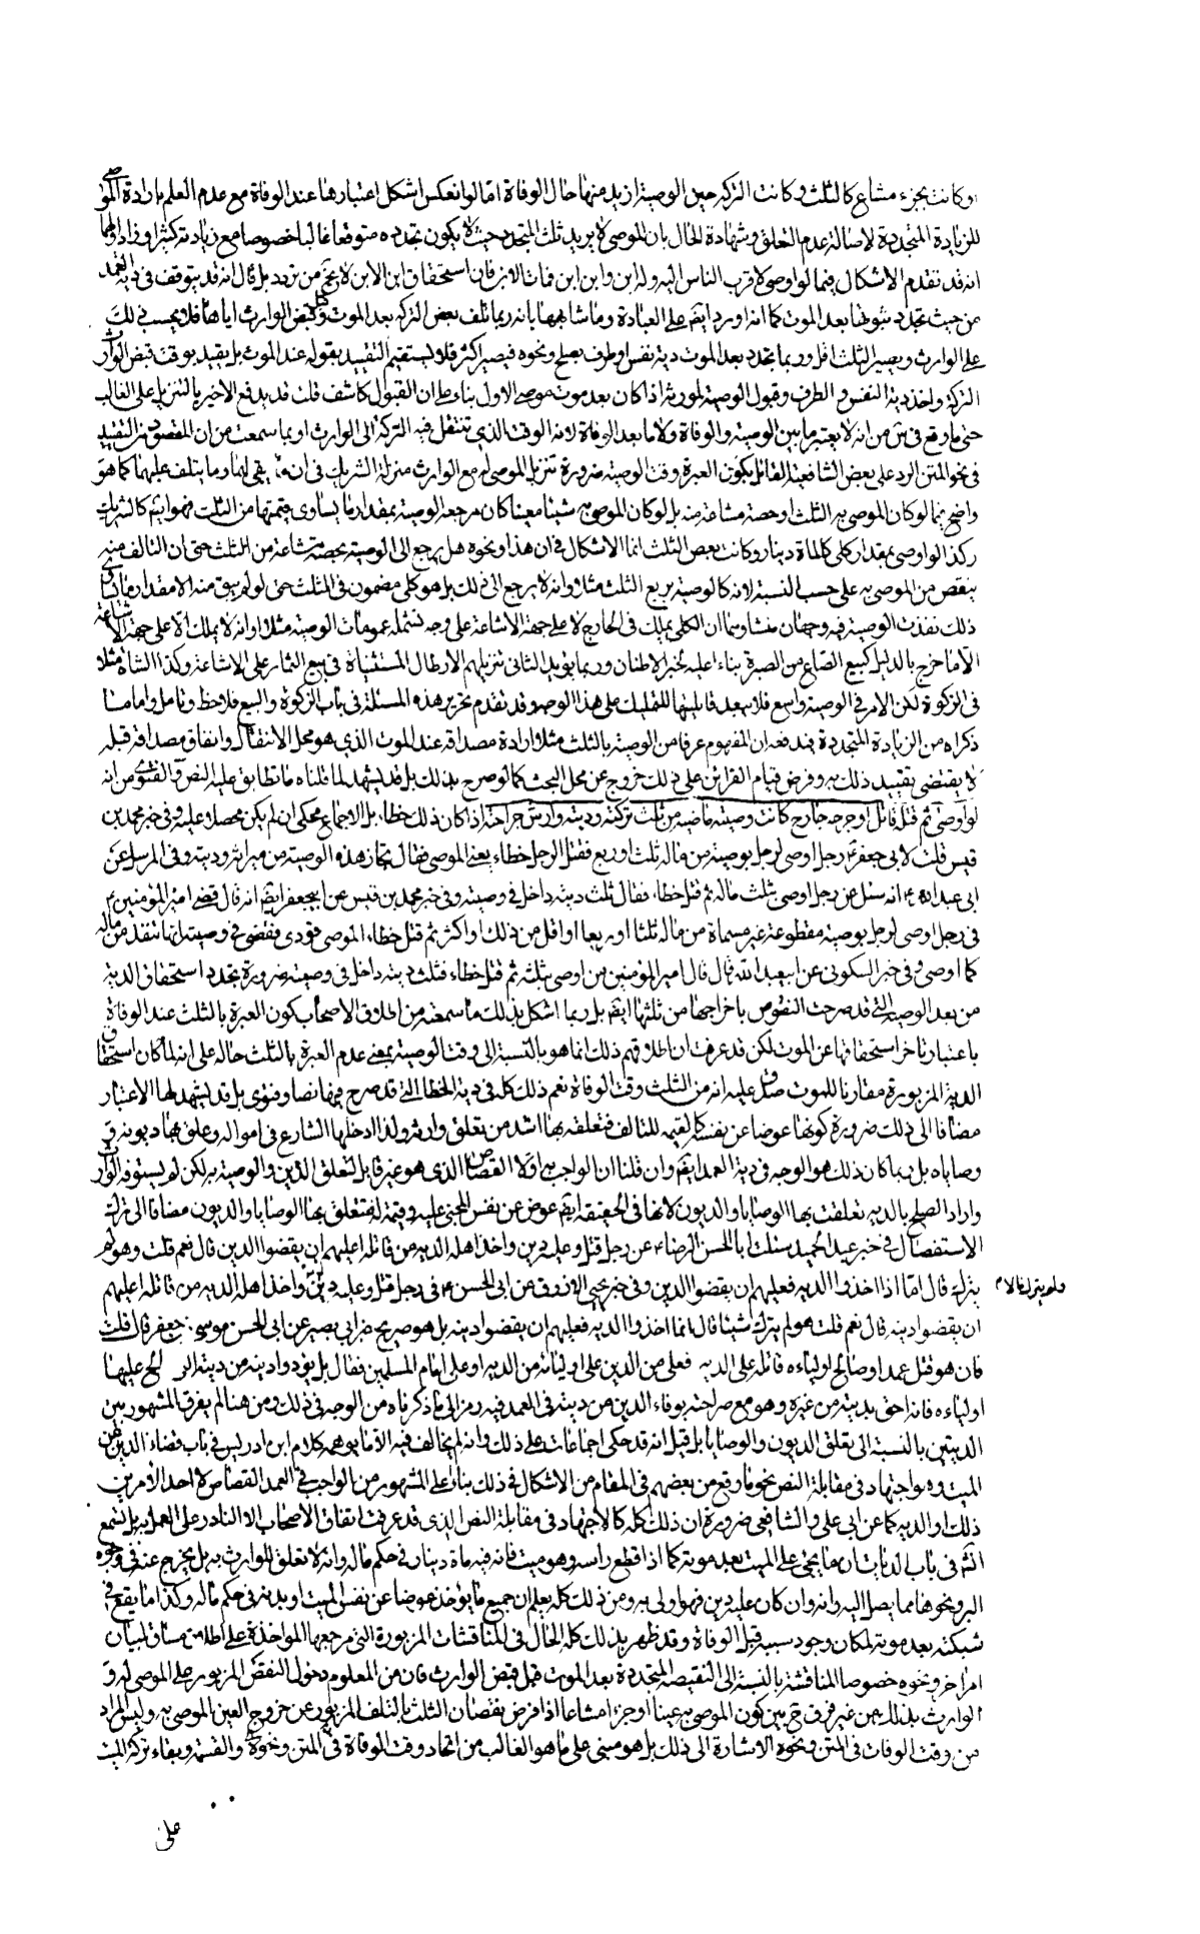 او كانت بجزء مشاع كالثلث وكانت التركه حين الوصية ازيد منها حال الوفاة اما لو انعكس اشكل اعتبارها عند الوفاة مع عدم العلم بارادة الموصى
للزيادة المتجددة لاصالة عدم التعلق وشهادة الحال بان الموصى لا يريد ثلث المتجدد حيث لا يكون تجدده متوقعا غالبا خصوصا مع زيادته كثيرا
انه قد تقدم الاشكال فيما لو اوصى لاقرب الناس اليه وله ابن وابن ابن فمات الابن فان استحقاق ابن الابن لا يخ من تردد بل قال انه قد يتوقف فى دية العمد
من حيث تجدد ثبوتها بعد الموت كما انه اورد ايضم على العبادة وما شابهها بانه ربما تلف بعض التركه بعد الموت وقبل قبض الوارث اياها فلا يحسب ذلك
على الوارث ويصير الثلث اقل وربما تجدد بعد الموت دية نفس او طرف بصلح ونحوه فيصير اكثر فلا يستقيم التقييد بقوله عند الموت بل يقيد بوقت قبض الوارث
التركة واخذ دية النفس و الطرف وقبول الوصية لمورثه اذا كان بعد موت موصى الاول بناء على ان القبول كاشف قلت قد يدفع الاخير بالتنزيل على الغالب
حتى ما وقع فى من انه لا يعتبر ما بين الوصية والوفاة ولا ما بعد الوفاة لانه الوقت الذى تنتقل فيه التركة الى الوارث او بما سمعت من ان المقصود من التقييد
فى نحو المتن الرد على بعض الشافعية القائل بكون العبرة وقت الوصية ضرورة تنزيل الموصى له مع الوارث منزلة الشريك فى ان ما يبقى لهما وما يتلف عليهما كما هو
واضح فيما لو كان الموصى به الثلث او حصة مشاعة منه بل لو كان الموصى به شيئا معينا كان مرجعه الوصية بمقدار ما يساوى قيمتها من الثلث فهو ايضم كالشريك
وكذا لو اوصى بمقدار كلى كالمائة دينار وكانت بعض الثلث انما الاشكال فى ان هذا ونحوه هل يرجع الى الوصية بحصة مشاعة من الثلث حتى ان التالف منه
ينقص من الموصى به على حسب النسبة لانه كالوصية بربع الثلث مثلا وانه لا يرجع الى ذلك بل هو كلى مضمون فى الثلث حتى لو لم يبق منه الا مقدار ما يساوى
ذلك نفذت الوصية فيه وجهان منشاؤهما ان الكلى يملك فى الخارج لا على جهة الاشاعة على وجه تشمله عمومات الوصية مثلا او انه لا يملك الا على جهة الاشاعة
الا ما خرج بالدليل كبيع الصاع من الصبرة بناء عليه لخبر الاطنان وربما يؤيد الثانى تنزيلهم الارطال المستثناة فى بيع الثمار على الاشاعة وكذا الشاة مثلا
فى الزكوة لكن الامر فى الوصية واسع فلا يبعد قابليتها للتمليك على هذا الوجه وقد تقدم تحرير هذه المسئلة فى باب الزكوة والبيع فلاحظ وتامل واما ما
ذكراه من الزيادة المتجددة فيدفعه ان المفهوم عرفا من الوصية بالثلث مثلا ارادة مصداقه عند الموت الذى هو محل الانتقال واتفاق مصداقه قبله
لا يقتضى تقييد ذلك به وفرض قيام القرائن على ذلك خروج عن محل البحث كما لو صرح بذلك بل قد يشهد لما قلناه ما تطابق عليه النص والفتوى من انه
لو اوصى ثم قتل قاتل او جرحه جارح كانت وصيته ماضيه من ثلث تركته وديته وارش جراحته اذا كان ذلك خطا، بل الاجماع محكى ان لم يكن محصلا عليه وفى خبر محمد بن
قيس قلت لابى جعفر ع رجل اوصى لرجل بوصية من ماله ثلث او ربع فقتل الرجل خطاء يعنى الموصى فقال تجاز هذه الوصية من ميراثه وديته وفى المرسل عن
ابى عبد الله ع انه سئل عن رجل اوصى بثلث ماله ثم قتل خطا، فقال ثلث ديته داخل فى وصيته وفى خبر محمد بن قيس عن ابيجعفر ايضم انه قال قضى امير المؤمنين ع
فى رجل اوصى لرجل بوصية مقطوعة غير مسماة من ماله ثلثا او ربعا او اقل من ذلك او اكثر ثم قتل خطاء، الموصى فودى فقضى فى وصيته انها تنفذ من ماله
كما اوصى وفى خبر السكونى عن ابيعبد الله قال قال امير المؤمنين من اوصى بثلثه ثم قتل خطاء فثلث ديته داخل فى وصيته ضرورة تجدد استحقاق الدية
من بعد الوصية التى قد صرحت النصوص باخراجها من ثلثها ايضم بل ربما اشكل بذلك ما سمعته من اطلاق الاصحاب كون العبرة بالثلث عند الوفاة
باعتبار تاخر استحقاقها عن الموت لكن قد عرفت ان اطلاقهم ذلك انما هو بالنسبة الى وقت الوصية بمعنى عدم العبرة بالثلث حاله على انه لما كان استحقاق
الدية المزبورة مقارنا للموت صدق عليه انه من الثلث وقت الوفاة نعم ذلك كله فى دية الخطا التى قد صرح فيها نصا وفتوى بل قد يشهد لها الاعتبار
مضافا الى ذلك ضرورة كونها عوضا عن نفسه كالقيمه للتالف فتعلقه بها اشد من تعلق وارثه ولذا ادخلها الشارع فى امواله وعلق بها ديونه و
وصاياه بل ربما كان ذلك هو الوجه فى دية العمد ايضم وان قلنا ان الواجب اولا القصاص الذى هو غير قابل لتعلق الدين والوصية به لكن لو لم يستوفه الوارث
واراد الصلح بالدية تعلقت بها الوصايا والديون لانها فى الحقيقة ايضم عوض عن نفس المجنى عليه وقيمة له فتتعلق بها الوصايا والديون مضافا الى ترك
الاستفصال فى خبر عبد الحميد سئلت ابا الحسن الرضا ع عن رجل قتل وعليه دين واخذ اهله الدية من قاتله اعليهم ان يقضوا الدين قال نعم قلت وهو لم
يترك قال اما اذا اخذوا الدية فعليهم ان يقضوا الدين وفى خبر يحيى الازرق عن ابى الحسن ع فى رجل قتل وعليه دين واخذ اهله الدية من قاتله اعليهم
ولم يترك مالا م
ان يقضوا دينه قال نعم قلت وهو لم يترك شيئا قال انما اخذوا الدية فعليهم ان يقضوا دينه بل هو صريح خبر ابى بصير عن ابى الحسن موسى بن جعفر قال قلت
فان هو قتل عمدا وصالح اوليائه قاتله على الدية فعلى من الدين على اوليائه من الدية او على امام المسلمين فقال بل يؤدوا دينه من ديته التى صالح عليها
اوليائه فانه احق بديته من غيره وهو مع صراحته بوفاء الدين من ديته فى العمد فيه رمز الى ما ذكرناه من الوجه فى ذلك ومن هنا لم يفرق المشهور بين
الديتين بالنسبة الى تعلق الديون والوصايا بل قيل انه قد حكى اجماعات على ذلك وانه لم يخالف فيه الا ما يوهمه كلام ابن ادريس فى باب قضاء الدين عن
الميت وهو اجتهاد فى مقابلة النص نحو ما وقع من بعضهم فى المقام من الاشكال فى ذلك بناء على المشهور من ان الواجب فى العمد القصاص لا احد الامرين
ذلك او الدية كما عن ابى على والشافعى ضرورة ان ذلك كله كالاجتهاد فى مقابلة النص الذى قد عرفت اتفاق الاصحاب الا النادر على العمل به بل تسمع
انشم فى باب الديات ان ما يجنى على الميت بعد موته كما اذا قطع راسه وهو ميت فانه فيه ماة دينار فى حكم ماله وانه لا تعلق للوارث به بل يخرج عنه فى وجوه
البر ونحوها مما يصل اليه وانه وان كان عليه دين فهو اولى به ومن ذلك كله يعلم ان جميع ما يؤخذ عوضا عن نفس الميت او بدنه فى حكم ماله وكذا ما يقع فى
شبكته بعد موته لمكان وجود سببه قبل الوفاة وقد ظهر بذلك كله الحال فى المناقشات المزبورة التى مرجعها المواخذة على اطلاق مساق لبيان
امر اخر ونحوه خصوصا المناقشة بالنسبة الى النقيصة المتجددة بعد الموت قبل قبض الوارث فان من المعلوم دخول النقص المزبور على الموصى له و
الوارث بذلك من غير فرق ح بين كون الموصى به عينا او جزءا مشاعا اذا فرض نقصان الثلث بالتلف المزبور عن خروج العين الموصى به وليس المراد
من وقت الوفات فى المتن ونحوه الاشارة الى ذلك بل هو مبنى على ما هو الغالب من اتحاد وقت الوفاة فى المتن ونحوه والقسمة وبقاء تركة الميت
على